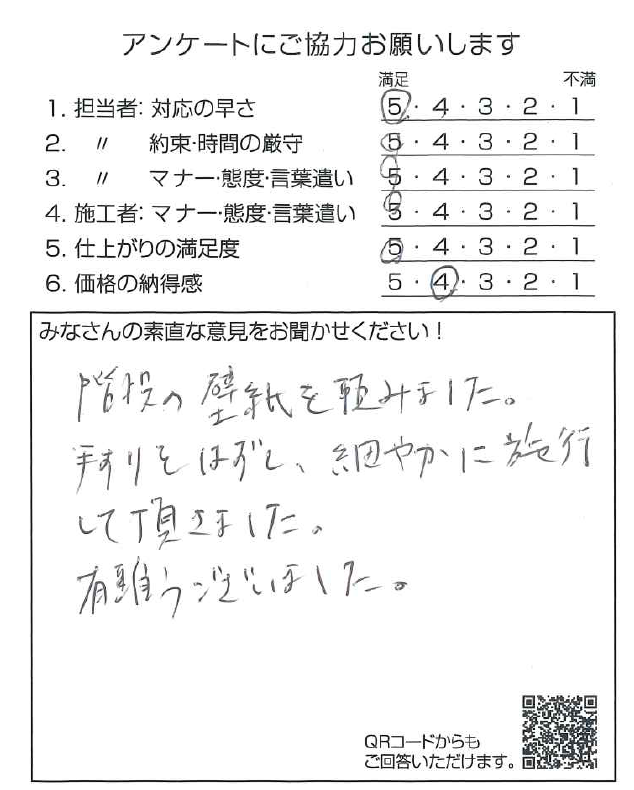 アンケートにご協力お願いします
満足 不満
1. 担当者: 対応の早さ 5・4・3・2・1
2. 〃 約束・時間の厳守 5・4・3・2・1
3. 〃 マナー・態度・言葉遣い 5・4・3・2・1
4. 施工者: マナー・態度・言葉遣い 5・4・3・2・1
5. 仕上がりの満足度 5・4・3・2・1
6. 価格の納得感 5・4・3・2・1
みなさんの素直な意見をお聞かせください！
階段の壁紙を頼みました。
手すりをはずし、細やかに施行
して頂きました。
有難うございました。
QRコードからも
ご回答いただけます。